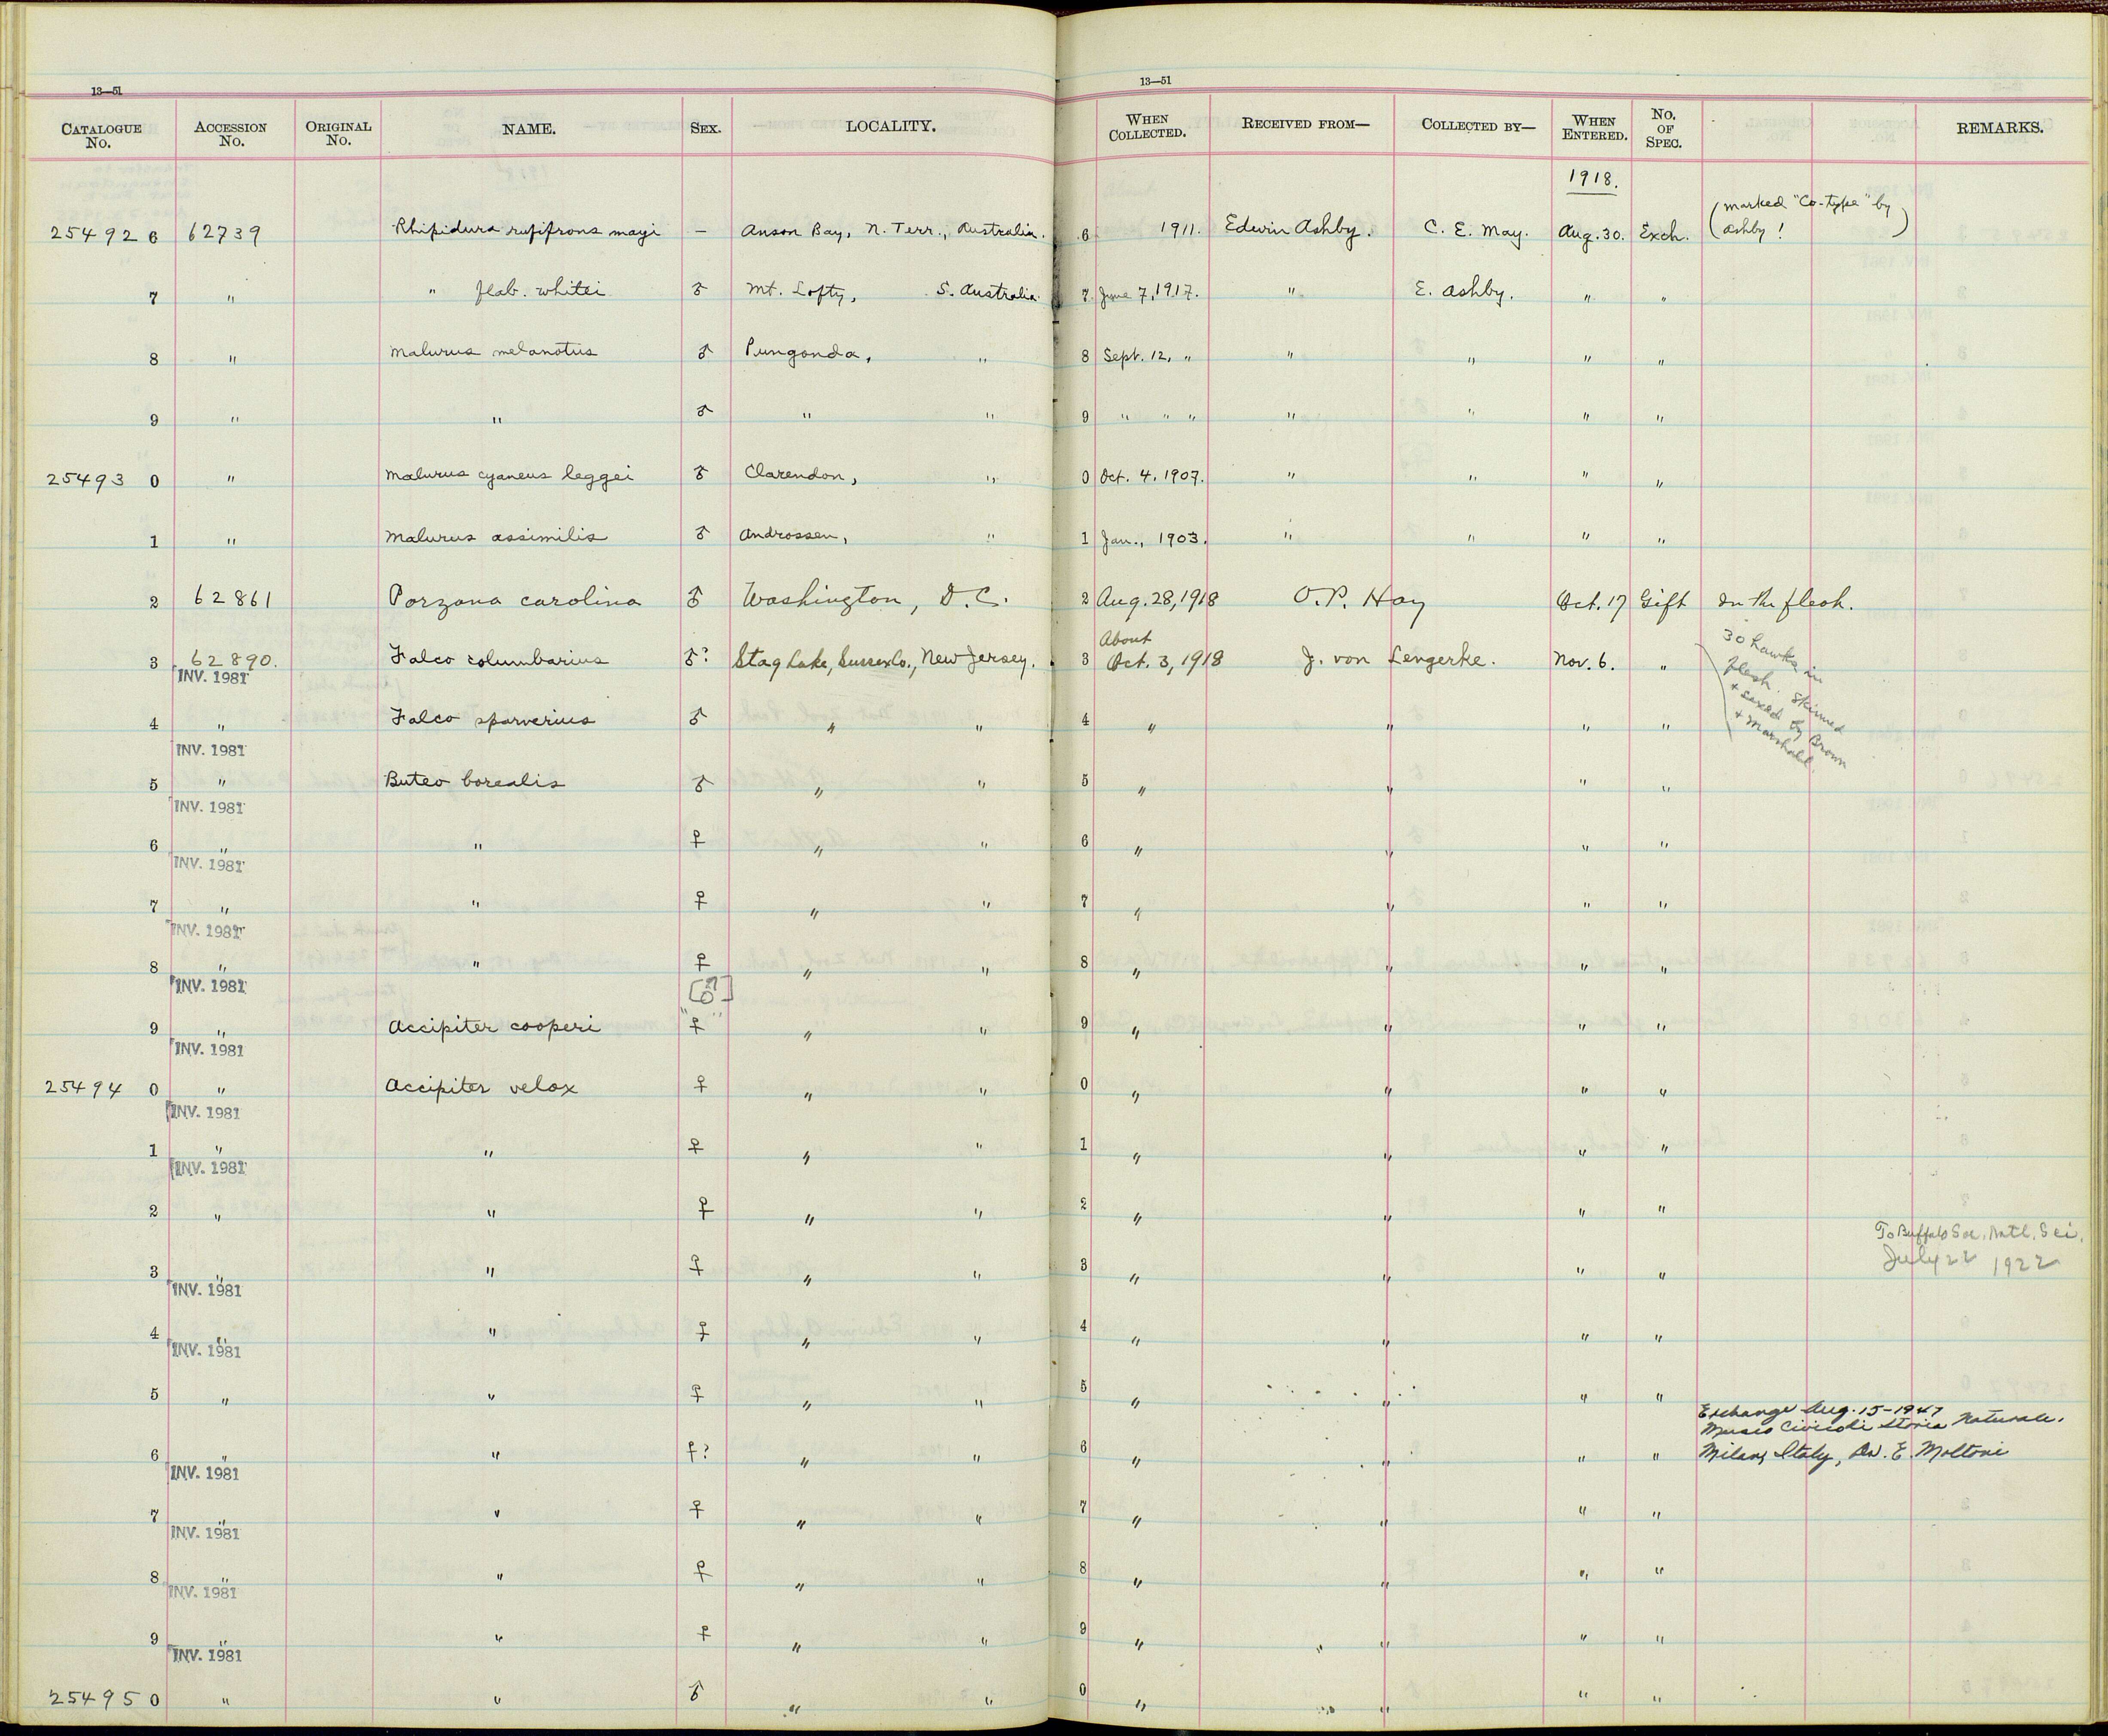 13—51
13—51
CATALOGUE No. ACCESSION No. ORIGINAL No. NAME. SEX. LOCALITY. WHEN COLLECTED. RECEIVED FROM— COLLECTED BY— WHEN ENTERED. No. OF SPEC. REMARKS.
1918.
25492 6 62739 Rhipidura rufifrons mayi – Anson Bay, N. Terr., Australia. 6 1911. Edwin Ashby. C. E. May. Aug. 30. Exch. (marked "Co-type" by
Ashby!)
7 " " flab. whitei ♂ Mt. Lofty, S. Australia. 7 June 7, 1917. " E. Ashby. " "
8 " Malurus melanotus ♂ Pungonda, " 8 Sept. 12, " " " " "
9 " " ♂ " " 9 " " " " " " "
25493 0 " Malurus cyaneus leggei ♂ Clarendon, " 0 Oct. 4. 1907. " " " "
1 " Malurus assimilis ♂ Androssen, " 1 Jan., 1903. " " " "
2 62861 Porzana carolina ♂ Washington, D.C. 2 Aug. 28, 1918 O.P. Hay Oct. 17 Gift In the flesh.
3 62890. Falco columbarius ♂? Stag Lake, Sussex Co., New Jersey. 3 About Oct. 3, 1918 J. von Lengerke. Nov. 6. "
INV. 1981
30 hawks in
flesh. Skinned
+ sexed by Brown
+ Marshall.
4 " Falco sparverius ♂ " " 4 " " " "
INV. 1981
5 " Buteo borealis ♂ " " 5 " " " "
INV. 1981
6 " " ♀ " " 6 " " " "
INV. 1981
7 " " ♀ " " 7 " " " "
INV. 1981
8 " " ♀ " " 8 " " " "
INV. 1981
[♂]
9 " Accipiter cooperi "♀" " " 9 " " " "
INV. 1981
25494 0 " Accipiter velox ♀ " " 0 " " " "
INV. 1981
1 " " ♀ " " 1 " " " "
INV. 1981
2 " " ♀ " " 2 " " " "
To Buffalo Soc. Natl. Sci.
July 22 1922
3 " " ♀ " " 3 " " " "
INV. 1981
4 " " ♀ " " 4 " " " "
INV. 1981
5 " " ♀ " " 5 " " " "
Exchange Aug. 15-1947
Museo Civico di Storia Naturale.
6 " " ♀? " " 6 " " " " Milan, Italy, Dr. E. Moltoni
INV. 1981
7 " " ♀ " " 7 " " " "
INV. 1981
8 " " ♀ " " 8 " " " "
INV. 1981
9 " " ♀ " " 9 " " " " "
INV. 1981
25495 0 " " ♂ " " 0 " " " " "